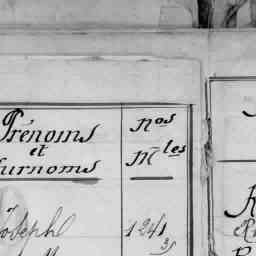 Prénoms
et
Surnoms
Nos
Mles
Joseph
1241